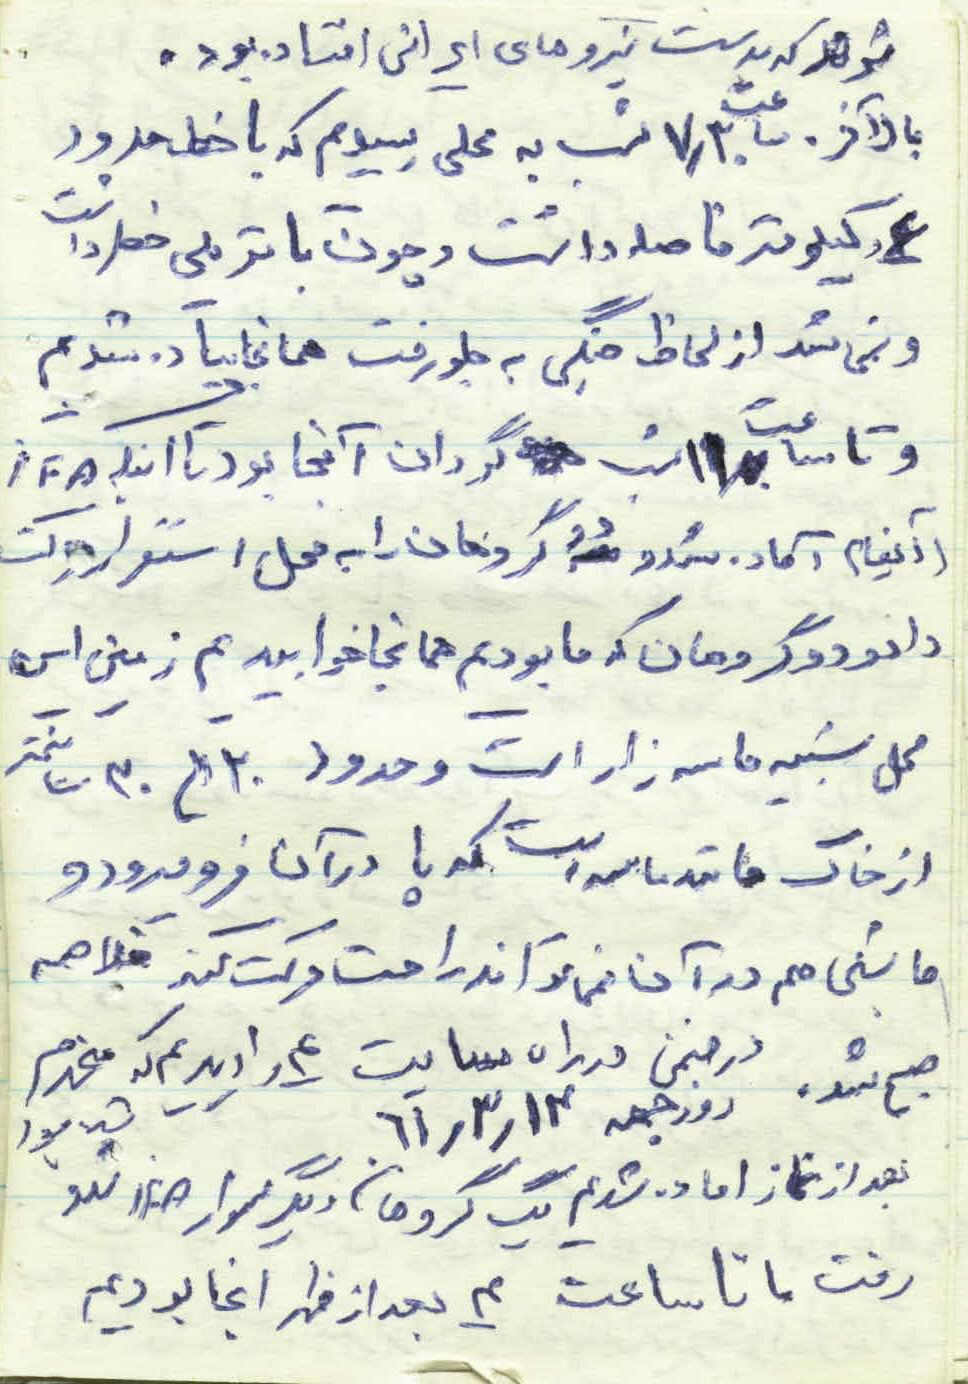 که بدست نیروهای ایرانی افتاده بود.
بالاآخره ساعت ۷٫۳۰ شب به محلی رسیدیم که با خط حدود
۴ کیلومتر فاصله داشت و چون با تو ملی خطر داشت
و نمی شد از لحاظ جنگی به جلو رفت همانجا پیاده شدیم
و تا ساعت ۱۱ شب گردان آنجا بود تا اینکه
آماده شد و دو گروهان را به محل استقرار حرکت
دادو دو گروهان که ما بودیم همانجا خوابیدیم زمین این
محل شبیه ماسه زار است و حدود ۲۰ الی ۳۰ سانتمتر
از خاک مانند ماسه است که پا در آن فرو میرود و
ماشینی هم در آن نمی تواند راحت حرکت کند خلاصه
صبح شد. در ضمن در راه سایت ۴ را دیدیم که منهدم
شده بود
روز جمعه ۶۱٫۳٫۱۳
بعد از نماز اماده شدیم یک گروهان دیگر سوار شد و
رفت ما تا ساعت ۴ بعد از ظهر انجا بودیم